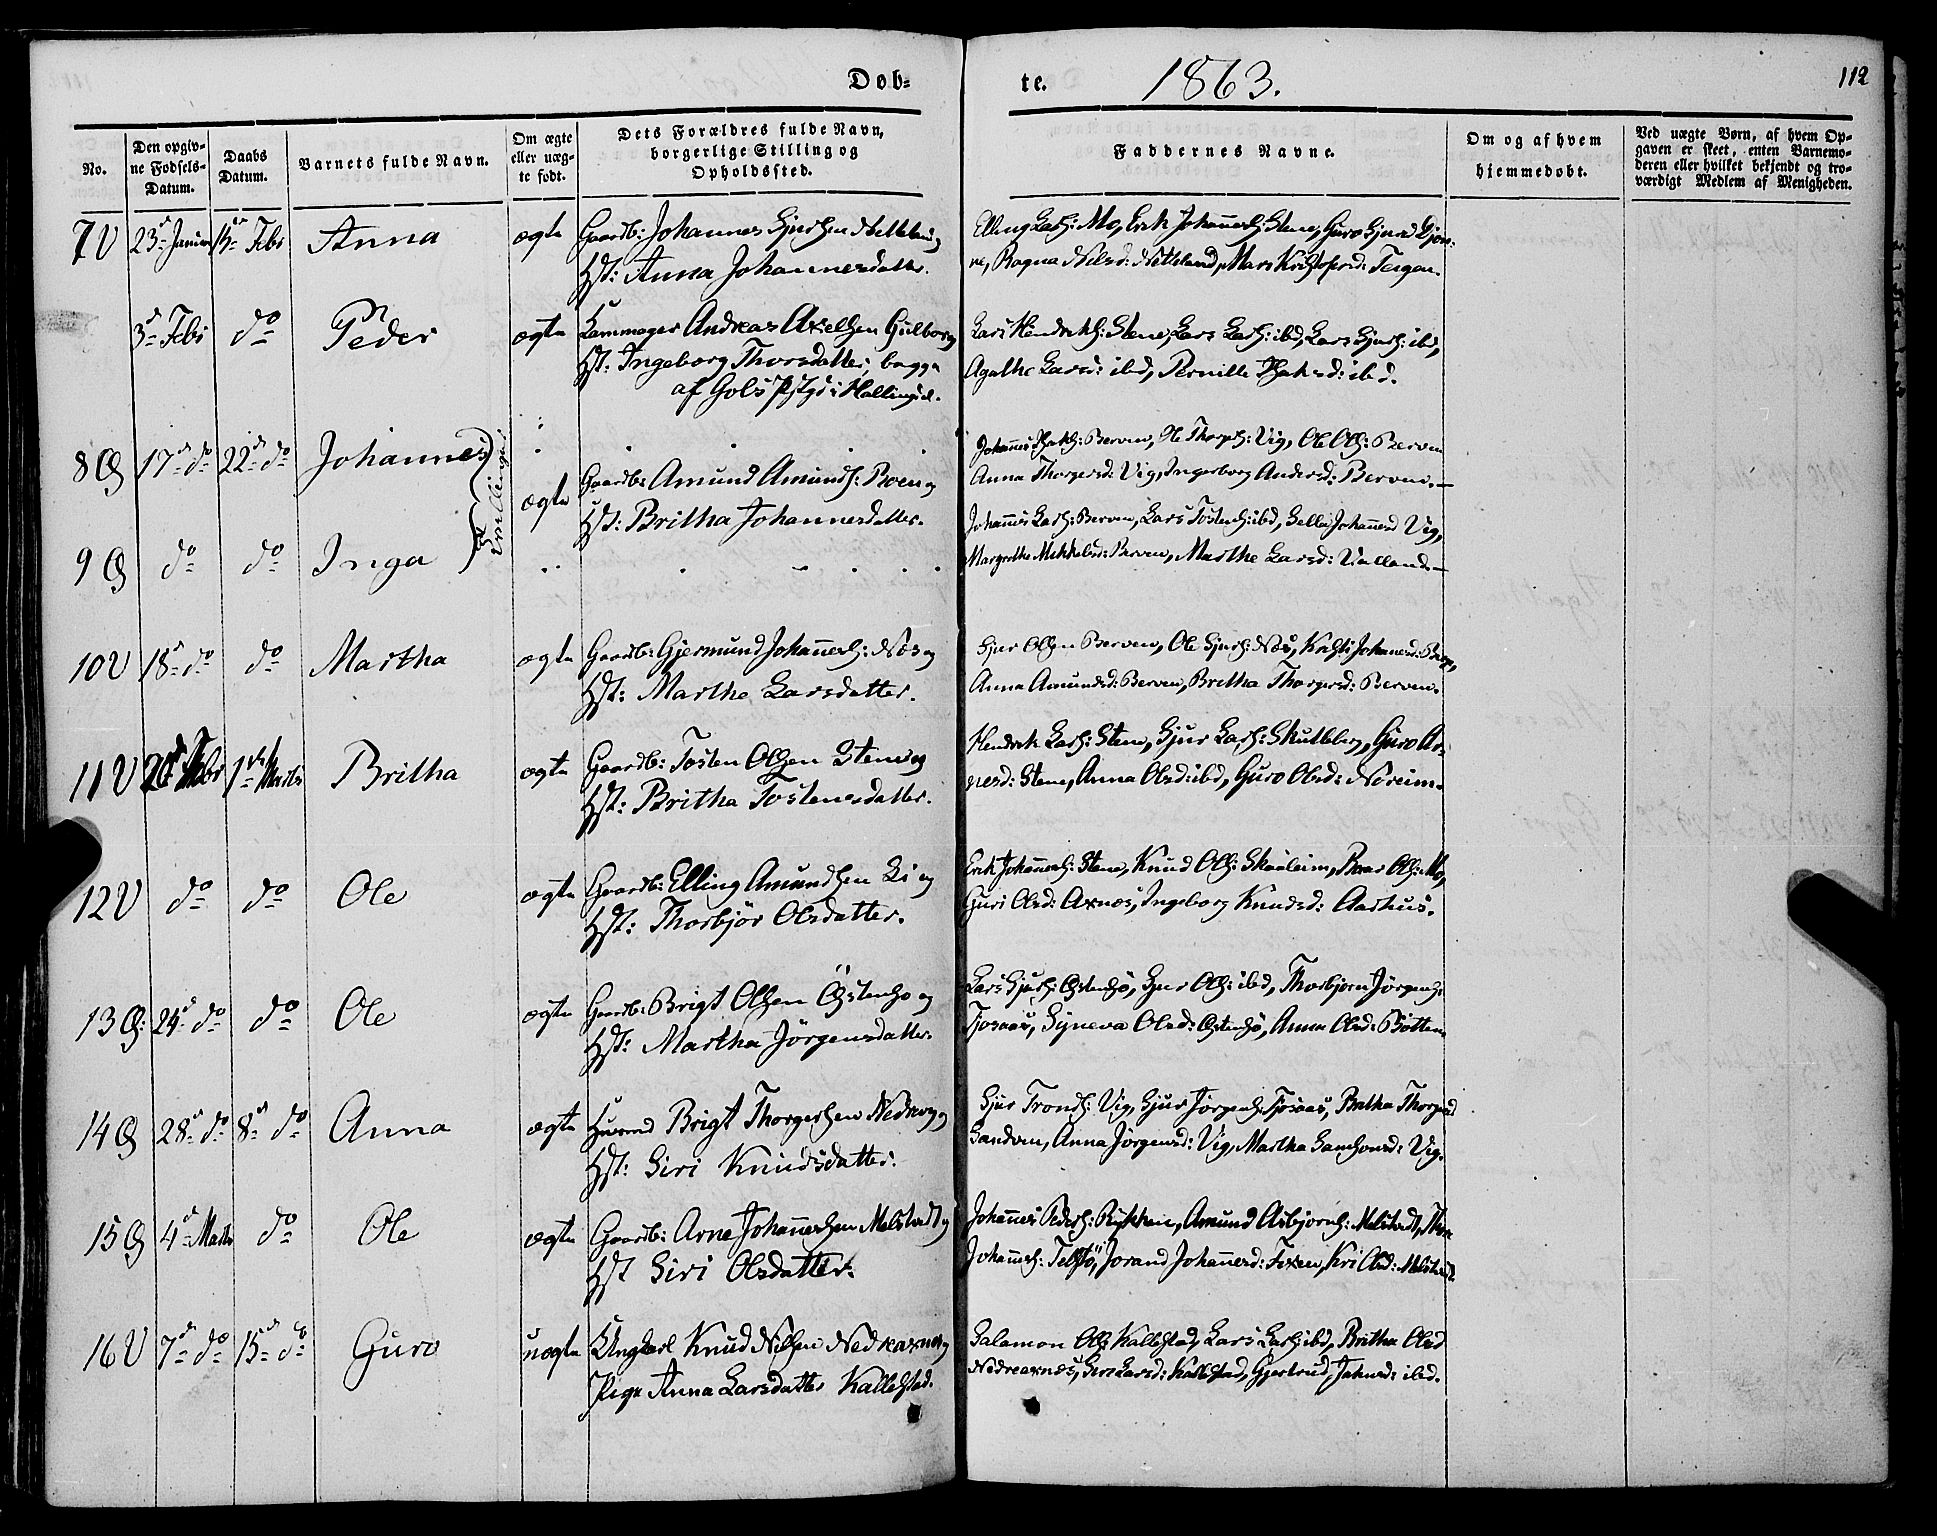 Døb-
te. 1863. 112
No. Den opgiv-ne Fødsels-Datum. Daabs Datum. Barnets fulde Navn. Om ægte eller uæg-te født. Dets Forældres fulde Navn, borgerlige Stilling og Opholdssted. Faddernes Navne. Om og af hvem hjemmedøbt. Ved uægte Børn, af hvem Op-gaven er skeet, enten Barnemo-deren eller hvilket bekjendt og tro-værdigt Medlem af Menigheden.
7 V 23d Januar Febr Anna ægte Gaardb: Johannes Sjursen og
Hst: Anna Johannesdatter.
Elling Lars: Mo, Erik Johannes: Stene, Guro Sjursd
Ragna Nilsd: Netteland, Mari Kristofersd: Teigen.
3d Febr do Peder ægte Kammager Andreas Axelsen Gulborg
Hst: Ingeborg Thorsdatter, begge
af Gols Pstgd i Hallingd.
Lars Hendriks: Stene, Lars Lars: ibd, Lars Sjurs: ibd,
Agathe Larsd: ibd, Pernille ibd.
8 Ø 17d do 22d do Johannes Tvillinger
ægte Gaardb: Amund Amunds: Berven og
Hst: Britha Johannesdatter.
Berven, Ole Thorgs: Vig, Ole Ols: Berven
Anna Thorgersd: Vig, Ingeborg Andersd: Berven.
9 Ø do do Inga
Johannes Lars: Berven, Lars Tostens: ibd, Johannesd Vig,
Margrethe Mikkelsd: Berven, Marthe Larsd: Valland
10 V 18d do do Martha ægte Gaardb: Gjermund Johannes: Næs og
Hst: Marthe Larsdatter.
Sjur Olsen Berven, Ole Sjurs: Næs, Kristi Johannesd:
Anna Amundsd: Berven, Britha Thorgersd: Berven.
11 V Febr 1ste Marts Britha ægte Gaardb: Tosten Olsen Stene og
Hst: Britha Tostensdatter.
Hendrik Lars: Stene, Sjur Lars: Skutleberg, Guro Ar-
nesd: Stene, Anna Olsd: ibd, Guro Olsd: Noreim.
12 V do do Ole ægte Gaardb: Elling Amundsen Li og
Hst: Thorbjør Olsdatter.
Erik Johannes: Stene, Knud Ols: Skaaleim, Ols: Mo,
Guri Olsd: Axnes, Ingeborg Knudsd: Aarhus.
13 Ø: 24d do do Ole ægte Gaardb: Brigt Olsen Øystenhø og
Hst: Martha Jørgensdatter.
Lars Sjurs: Øystenhø, Sjur Ols: ibd, Thorbjørn Jørgens:
Tjosaas, Syneva Olsd: Østenhø, Anna Olsd: Botten.
14 Ø 28d do 8d do Anna ægte Huusmd Brigt Thorgersen Nedrevig
Hst: Siri Knudsdatter.
Sjur Tronds: Vig, Sjur Jørgens: Tjosaas, Britha Thorgersd
Sandven, Anna Jørgensd: Vig, Martha Samsonsd: Vig.
15 Ø 4d Marts do Ole ægte Gaardb: Arne Johannessen Melstvedt og
Hst Siri Olsdatter.
Johannes Peders: Rykken, Amund Asbjørns: Melstvedt,
Johannes: Telstø, Jorand Johannesd: Foxen, Kri Olsd: Melstvedt
16 V 7d do 15d do Guro uægte Ungkarl Knud Nilsen Nedreaxnes og
Pige Anna Larsdatter Kallestad.
Salamon Ols: Kallestad, Lars Lars: ibd, Britha Olsd
Nedreaxnes, Siri Larsd: Kallestad, Gjertrud Jakobsd: ibd.